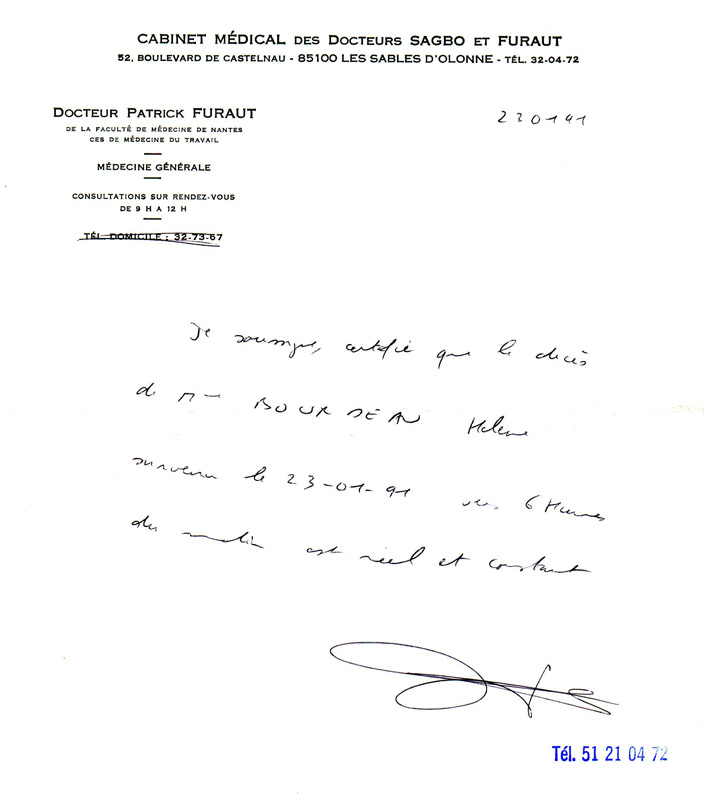 CABINET MÉDICAL DES DOCTEURS SAGBO ET FURAUT
52, BOULEVARD DE CASTELNAU - 85100 LES SABLES D'OLONNE - TÉL. 32-04-72
DOCTEUR PATRICK FURAUT
230191
DE LA FACULTÉ DE MÉDECINE DE NANTES
CES DE MÉDECINE DU TRAVAIL
MÉDECINE GÉNÉRALE
CONSULTATIONS SUR RENDEZ-VOUS
DE 9 H A 12 H
TÉL. DOMICILE : 32-73-67
Je soussigné, certifie que le décès
de Mme BOURDEAU Hélène
survenu le 23-01-91 vers 6 Heures
du matin est réel et constant
Tél. 51 21 04 72